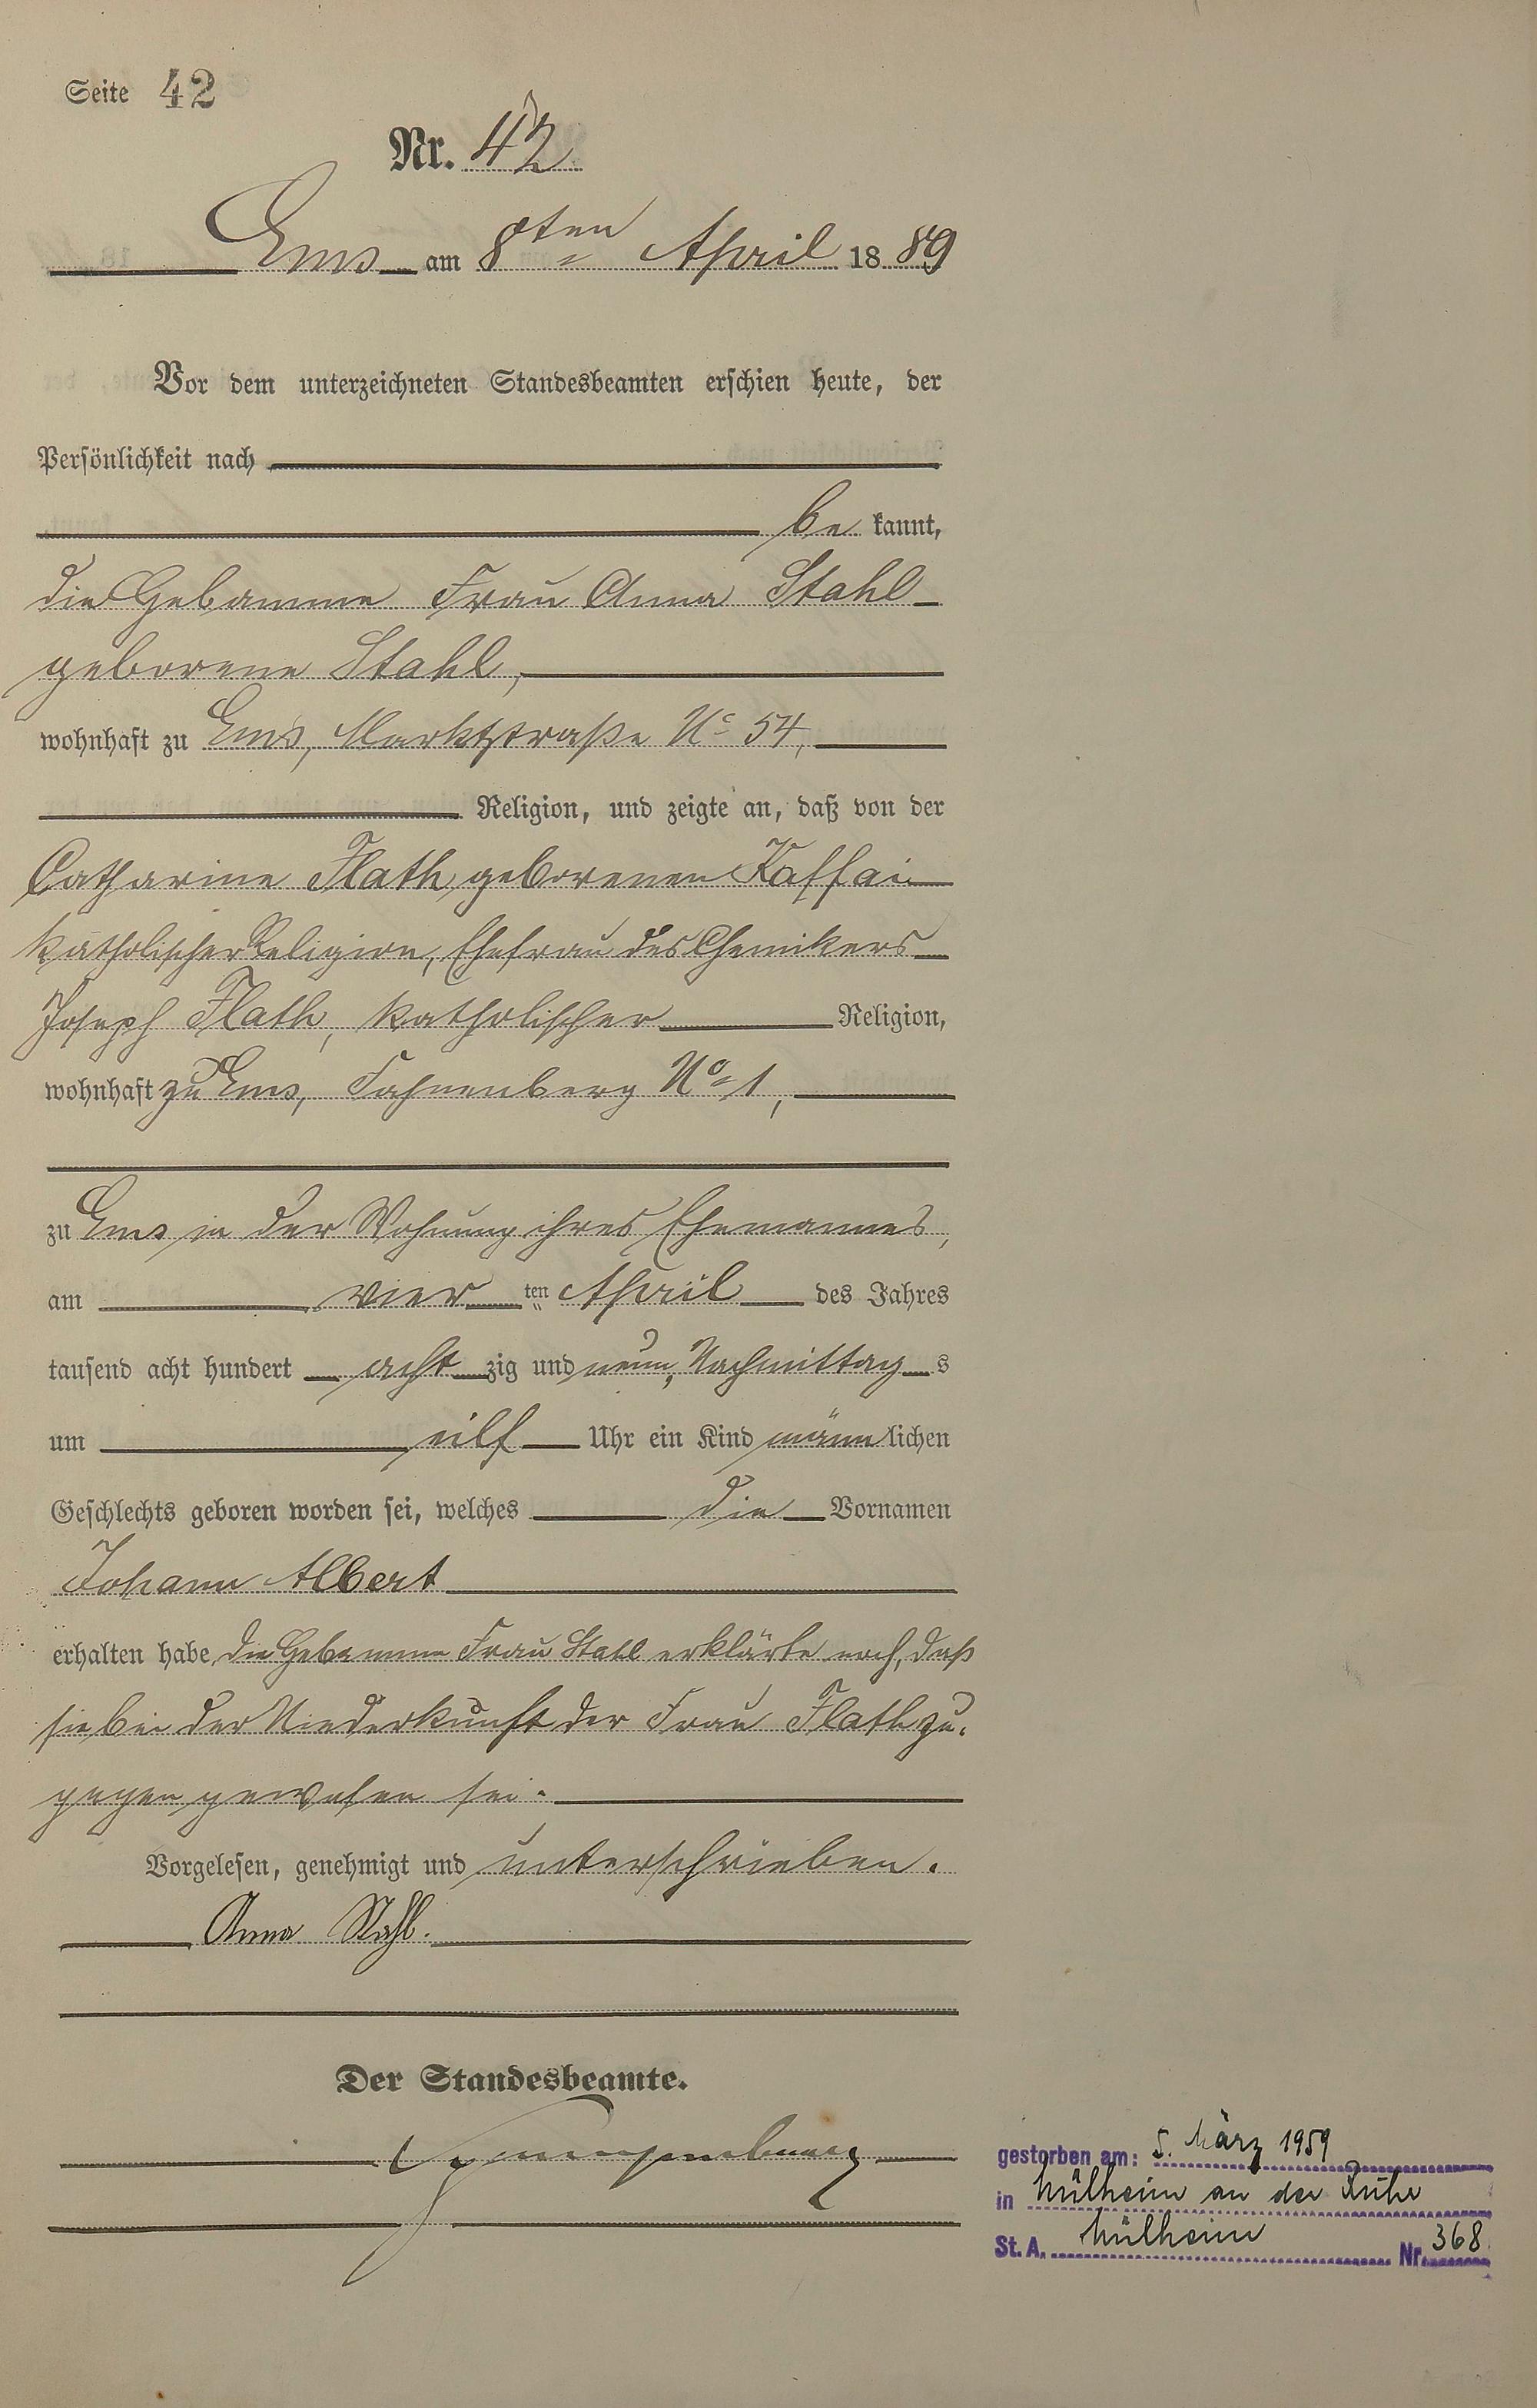 Seite 42
Nr. 42
Ems am 8ten April 1889
Vor dem unterzeichneten Standesbeamten erschien heute, der
Persönlichkeit nach
be kannt,
die Hebamme Frau Anna Stahl
geborene Stahl,
wohnhaft zu Ems, Marktstraße No 54,
Religion, und zeigte an, daß von der
Catharine Flath, geborenen Kaffai
katholischer Religion, Ehefrau des Chemikers
Joseph Flath, katholischer Religion,
wohnhaft zu Ems, Fahnenberg No 1,
zu Ems in der Wohnung ihres Ehemannes,
am vier ten April des Jahres
tausend acht hundert acht zig und neun, Nachmittag s
um eilf Uhr ein Kind männ lichen
Geschlechts geboren worden sei, welches die Vornamen
Johann Albert
erhalten habe, die Hebamme Frau Stahl erklärte noch, daß
sie bei der Niederkunft der Frau Flath zu-
gegen gewesen sei.
Vorgelesen, genehmigt und unterschrieben.
Anna Stahl.
Der Standesbeamte.
gestorben am: 5. März 1959
in Mülheim an der Ruhr
St. A. Mülheim Nr. 368